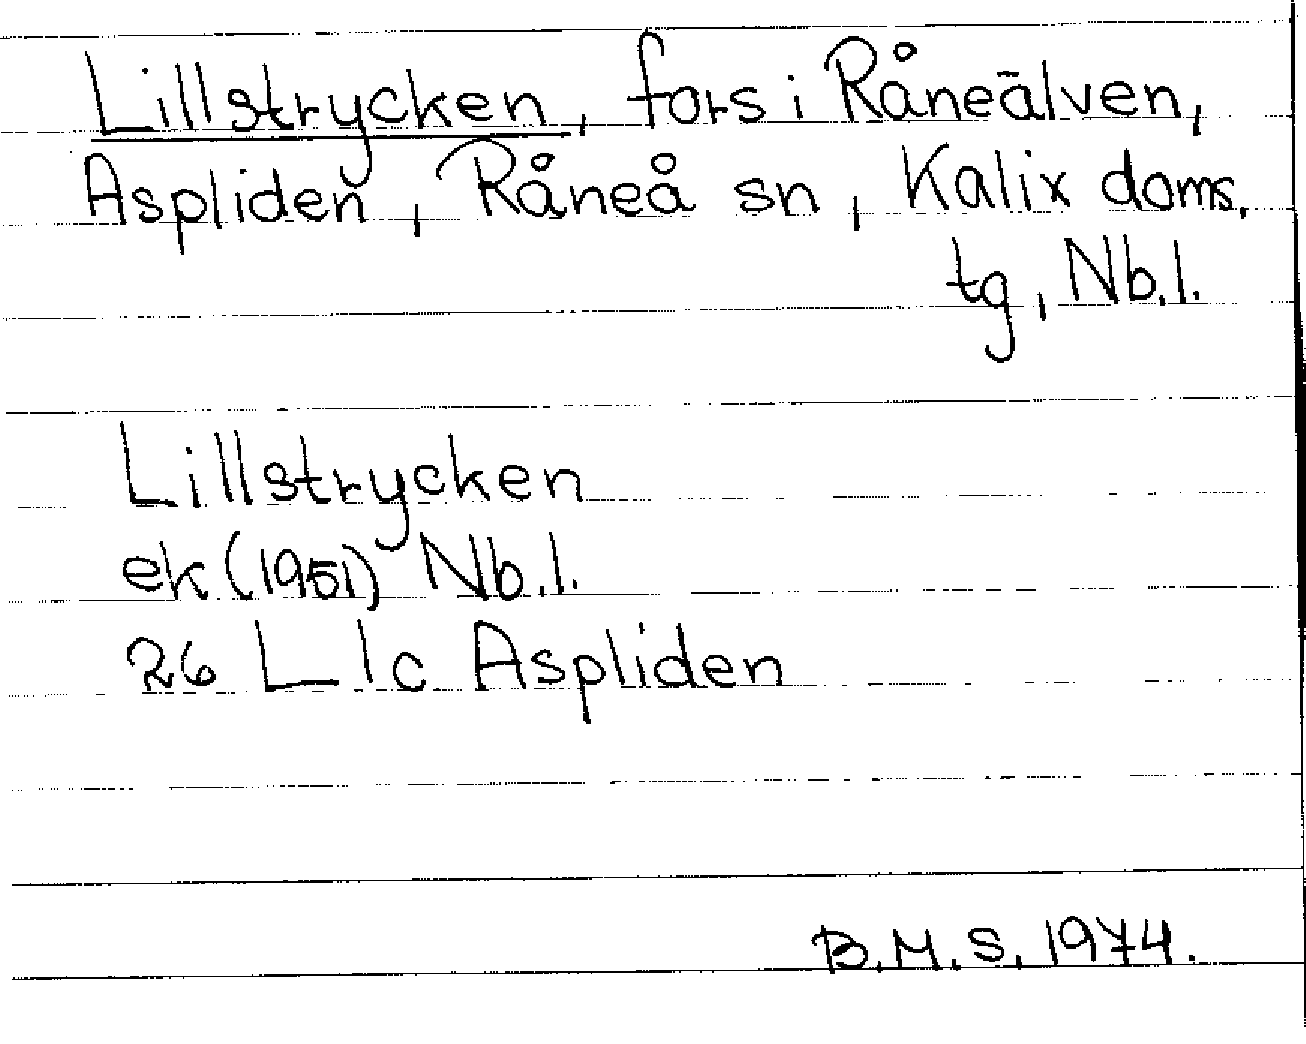 Lillstrycken, fors i Råneälven,
Aspliden, Råneå sn, Kalix doms.
tg, Nb.l.
Lillstrycken
ek (1951) Nb.l.
26 L 1c Aspliden
B.M.S. 1974.